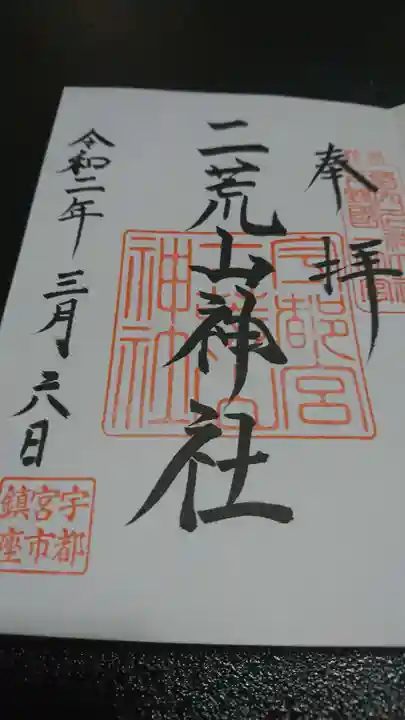 奉拝
二荒山神社
宇都宮
二荒山
神社
令和二年三月六日
宇都
宮市
鎮座